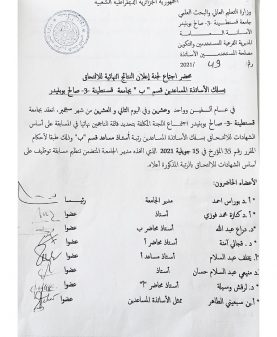 الجمهورية الجزائرية الديمقراطية الشعبية
وزارة التعليم العالي والبحث العلمي
جامعة قسنطينة -3- صالح بوبنيدر
الأمانة العامة
المديرية الفرعية للمستخدمين والتكوين
مصلحة المستخدمين
رقم 49 /2021
محضر اجتماع لجنة إعلان النتائج النهائية للالتحاق
بسلك الأساتذة المساعدين قسم "ب" بجامعة قسنطينة -3- صالح بوبنيدر
في عام ألفين وواحد وعشرين وفي اليوم الثاني والعشرين من شهر سبتمبر، انعقد بجامعة
قسنطينة -3- صالح بوبنيدر اجتماع اللجنة المكلفة بتحديد قائمة الناجحين نهائيا في المسابقة على أساس
الشهادات للالتحاق بسلك الأساتذة المساعدين رتبة أستاذ مساعد قسم "ب"، وذلك طبقا لأحكام
المقرر 35 المؤرخ في 15 جويلية 2021 الذي اتخذه مدير الجامعة المتضمن تنظيم مسابقة توظيف على
أساس الشهادات للالتحاق بالرتبة المذكورة أعلاه.
الأعضاء الحاضرون:
أ.د بوراس احمد مدير الجامعة رئيسا
أ.د كتازة محمد فوزي أستاذ عضوا
د. دراع عبد الله أستاذ محاضر ب عضوا
د. فجالي آمنة أستاذ محاضر أ عضوا
أ. يخلف عبد السلام أستاذ مساعد أ عضوا
د. منيعي عبد السلام حسان أستاذ عضوا
د. لرقش وسيلة أستاذ محاضر "أ" عضوا
أ. بن سبعيني الطاهر ممثل الأساتذة المساعدين عضوا